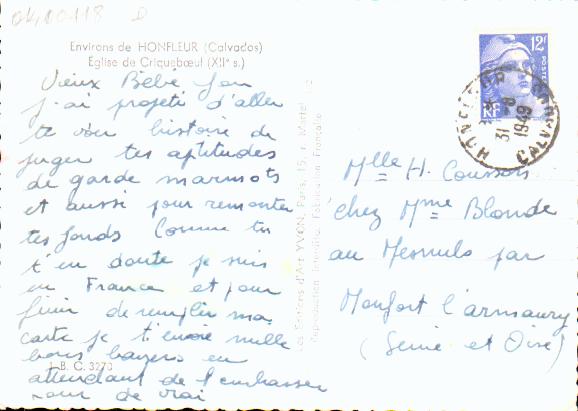 Environs de HONFLEUR (Calvados)
Eglise de Criquebœuf (XIIe s.)
Vieux Bébé
j'ai projeté d'aller
te voir histoire de
juger tes aptitudes
de garde marmots
et aussi pour remonter
tes fonds Comme tu
t'en doute je suis
en France et pour
finir de remplir ma
carte je t'envoie mille
bons baisers en
attendant de t'embrasser
pour de vrai
I. B. C. 3270
Les Editions d'Art YVON, Paris, 15, r. Martel
Reproduction Interdite. Fabrication Française
12F
POSTES
RF
HONFLEUR
31 -8
1949
CALVADOS
Mlle H. Coussens
chez Mme Blonde
au Mesnuls par
Monfort l'armaury
(Seine et Oise)